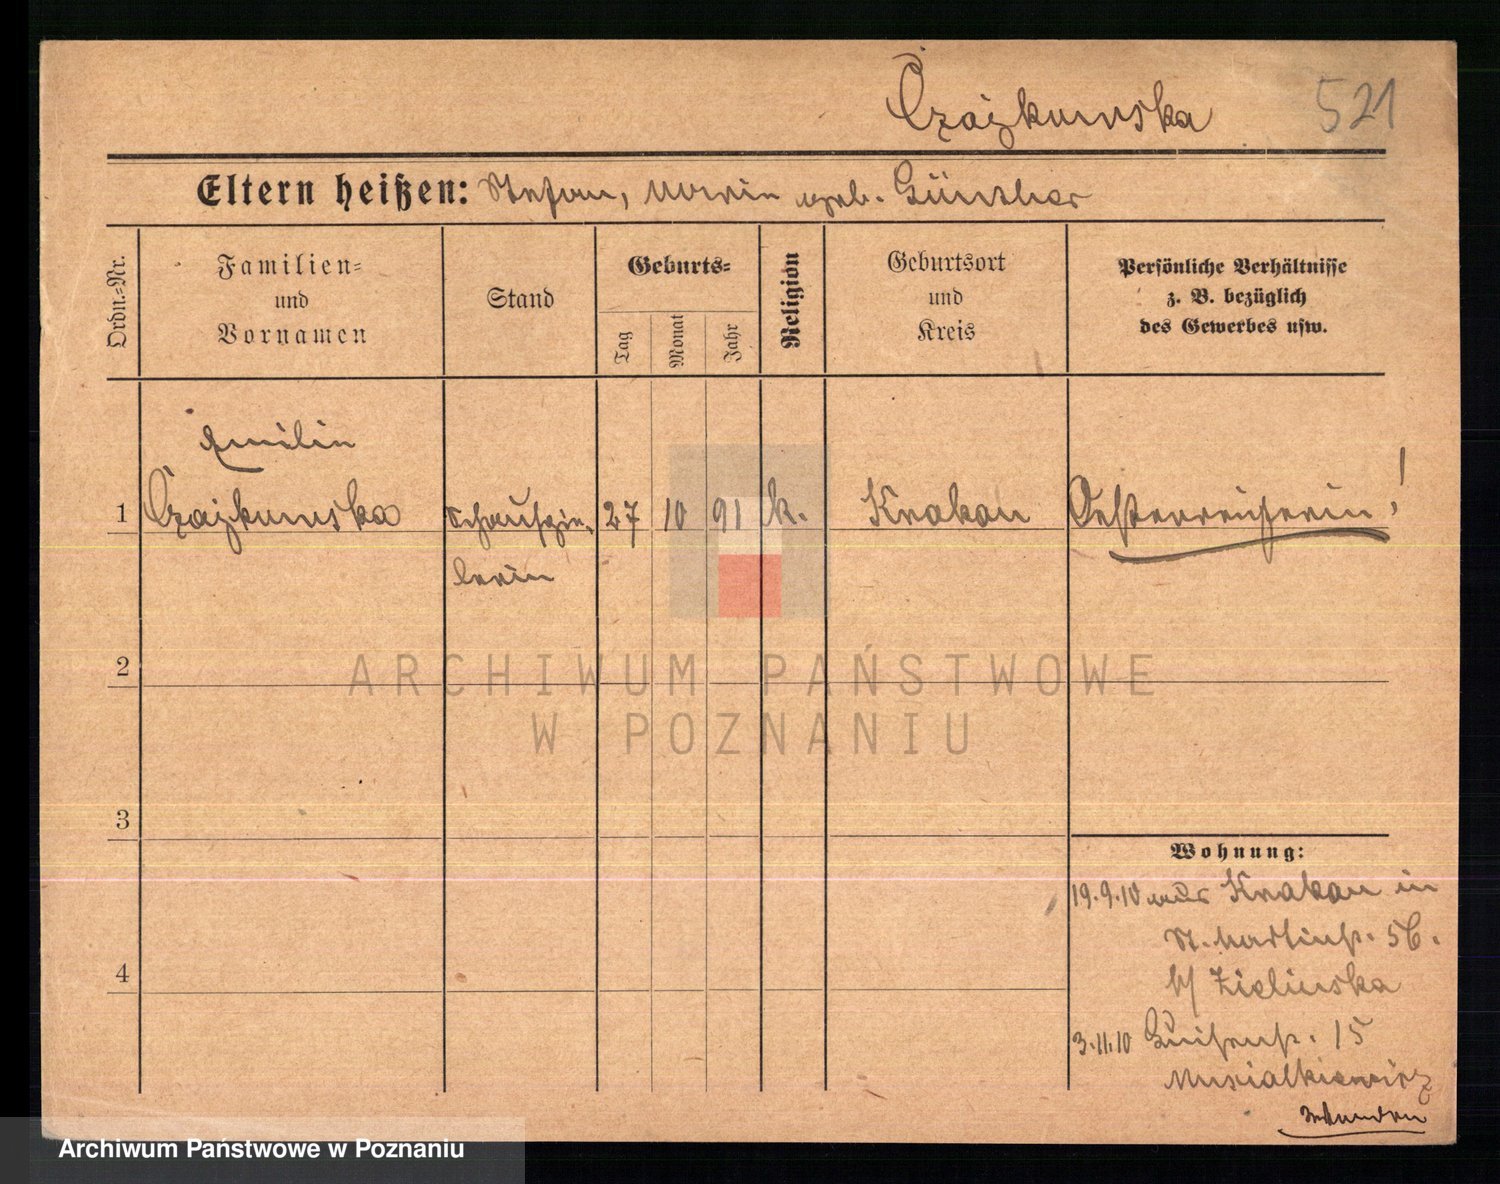 Czajkowska 521
Eltern heißen: Stefan, Marie geb. Günther
Ordn.-Nr.
Familien-
und
Vornamen
Stand
Geburts-
Tag
Monat
Jahr
Religion
Geburtsort
und
Kreis
Persönliche Verhältnisse
z. B. bezüglich
des Gewerbes usw.
Emilie
1 Czajkowska Schauspie- 27 10 91 k. Krakau Oesterreicherin!
lerin
2
ARCHIWUM PAŃSTWOWE
W POZNANIU
3
Wohnung:
19.9.10 aus Krakau in
St. Martinstr. 56.
b/ Zielinska
4
3.11.10 15
Musialkiewicz
Archiwum Państwowe w Poznaniu